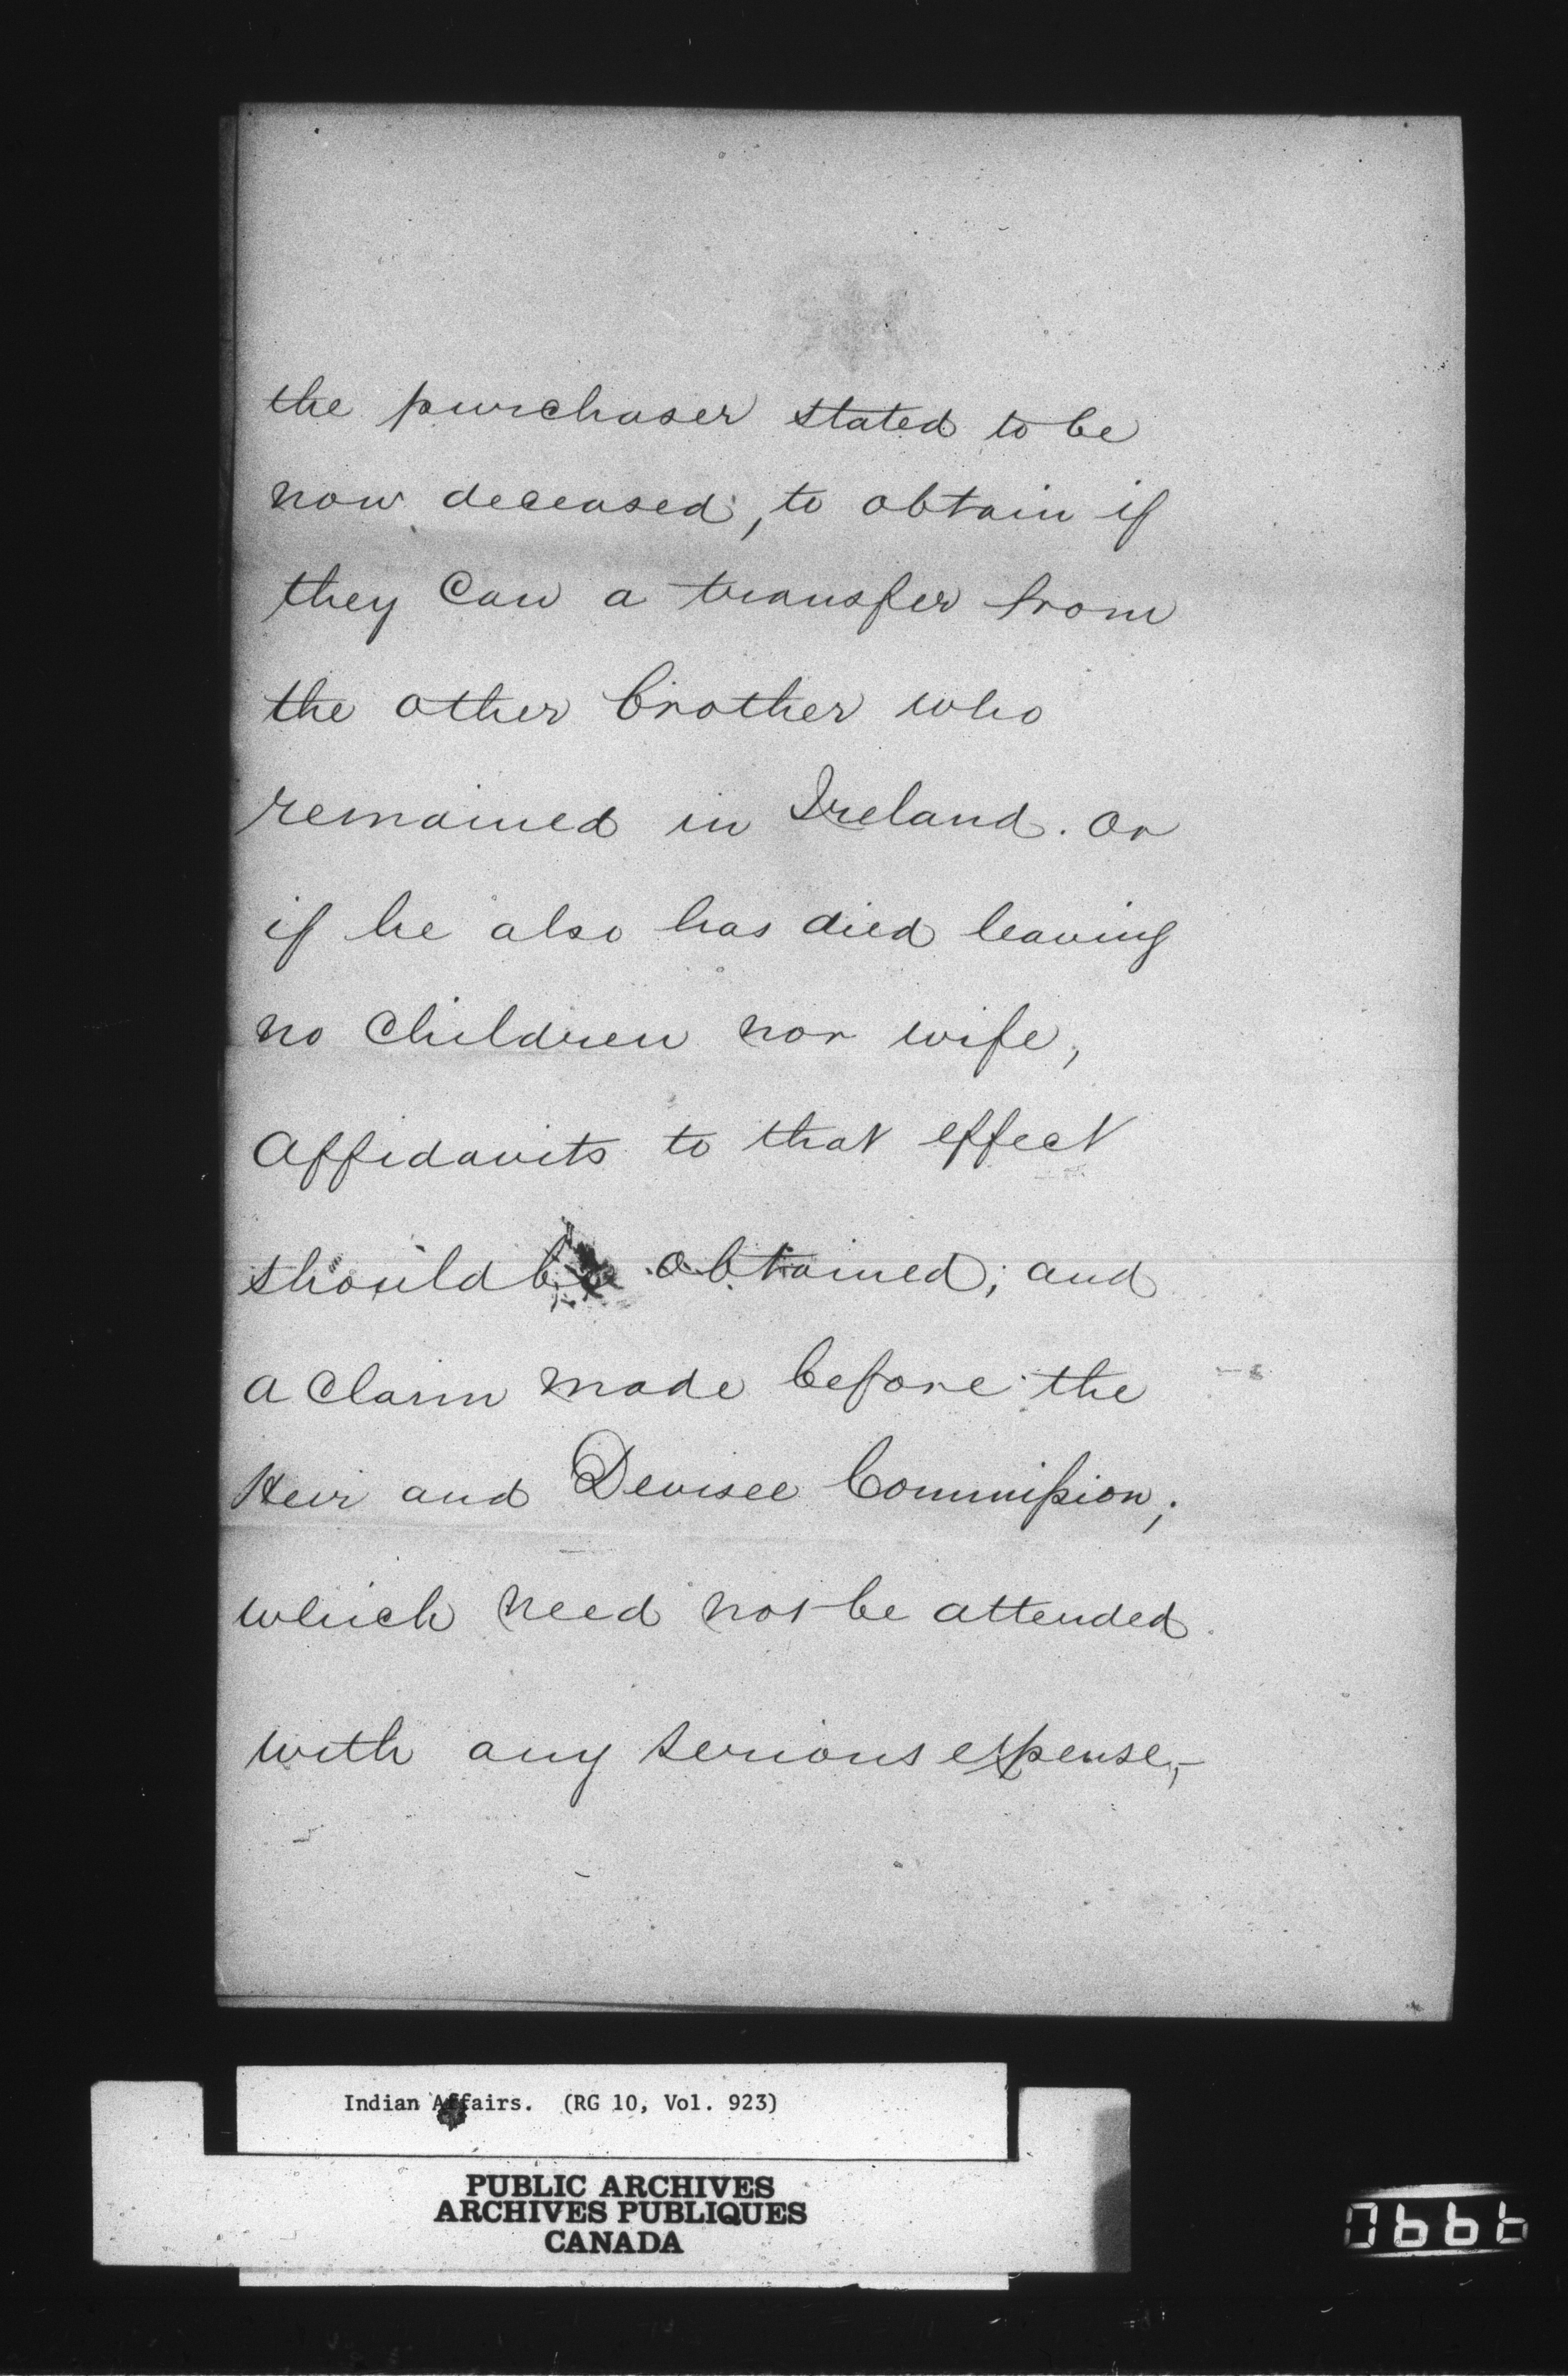 the purchaser stated to be
now deceased, to obtain if
they can a transfer from
the other brother who
remained in Ireland. Or
if he also has died leaving
no children nor wife,
Affidavits to that effect
should be obtained; and
a claim made before the
Heir and Devisee Commission;
which need not be attended
with any serious expense,-
Indian Affairs. (RG 10, Vol. 923)
PUBLIC ARCHIVES
ARCHIVES PUBLIQUES
CANADA
0666